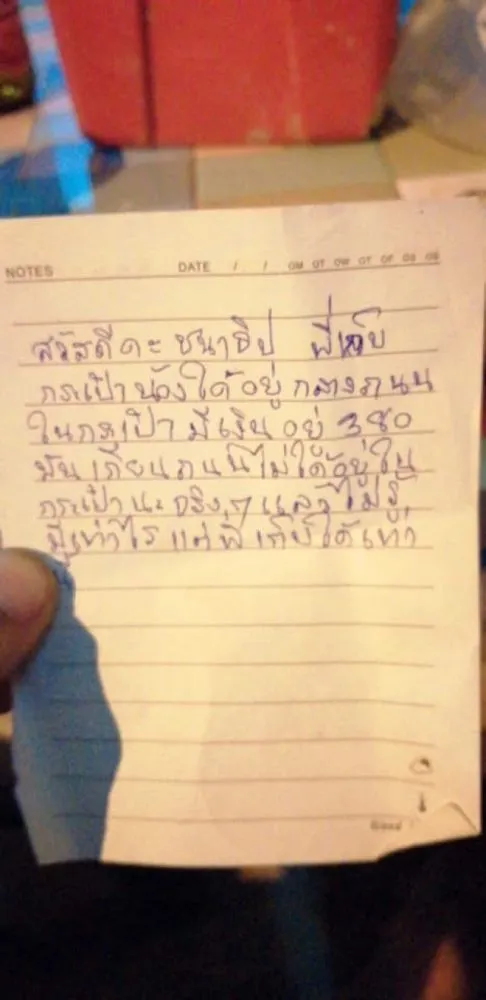 NOTES DATE / /
สวัสดีคะ ชนาธิป พี่เก็บ
กระเป๋าน้องได้อยู่กลางถนน
ในกระเป๋ามีเงินอยู่ 380
มันเกลี่ยนถนนไม่ได้อยู่ใน
กระเป๋านะจริงๆ แล้วไม่รู้
มีเท่าไรแต่พี่เก็บได้เท่า